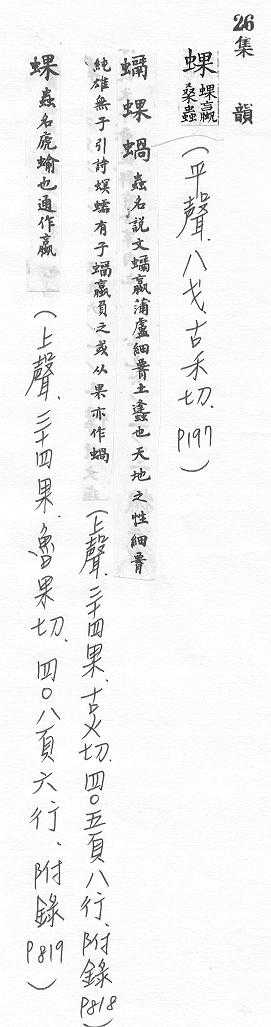 26
集韻
蜾 蜾蠃桑蟲(平聲.八戈.古禾切.P197)
蠣蜾蝸 蟲名說文蠣蠃蒲盧細𦝫土蠭也天地之性細𦝫
純雄無子引詩螟蠕有子蝸蠃負之或从果亦作蝸(上聲.三十四果.古火切.四〇五頁八行、附錄P818)
蜾 蟲名虒蝓也通作蠃(上聲.三十四果.魯果切.四〇八頁六行、附錄P819)